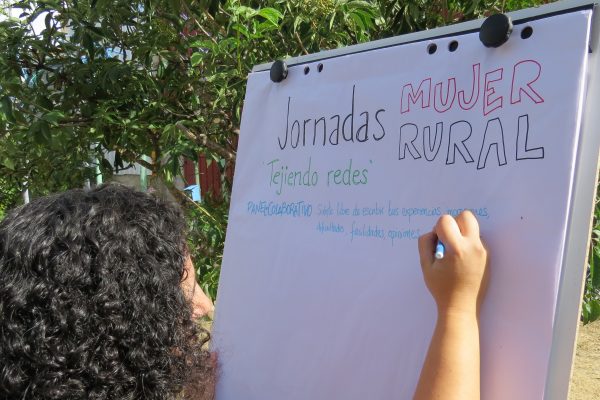 Jornadas MUJER
RURAL
'Tejiendo redes'
PANEL COLABORATIVO Siéntete libre de escribir tus experiencias,
dificultades, facilidades, opiniones